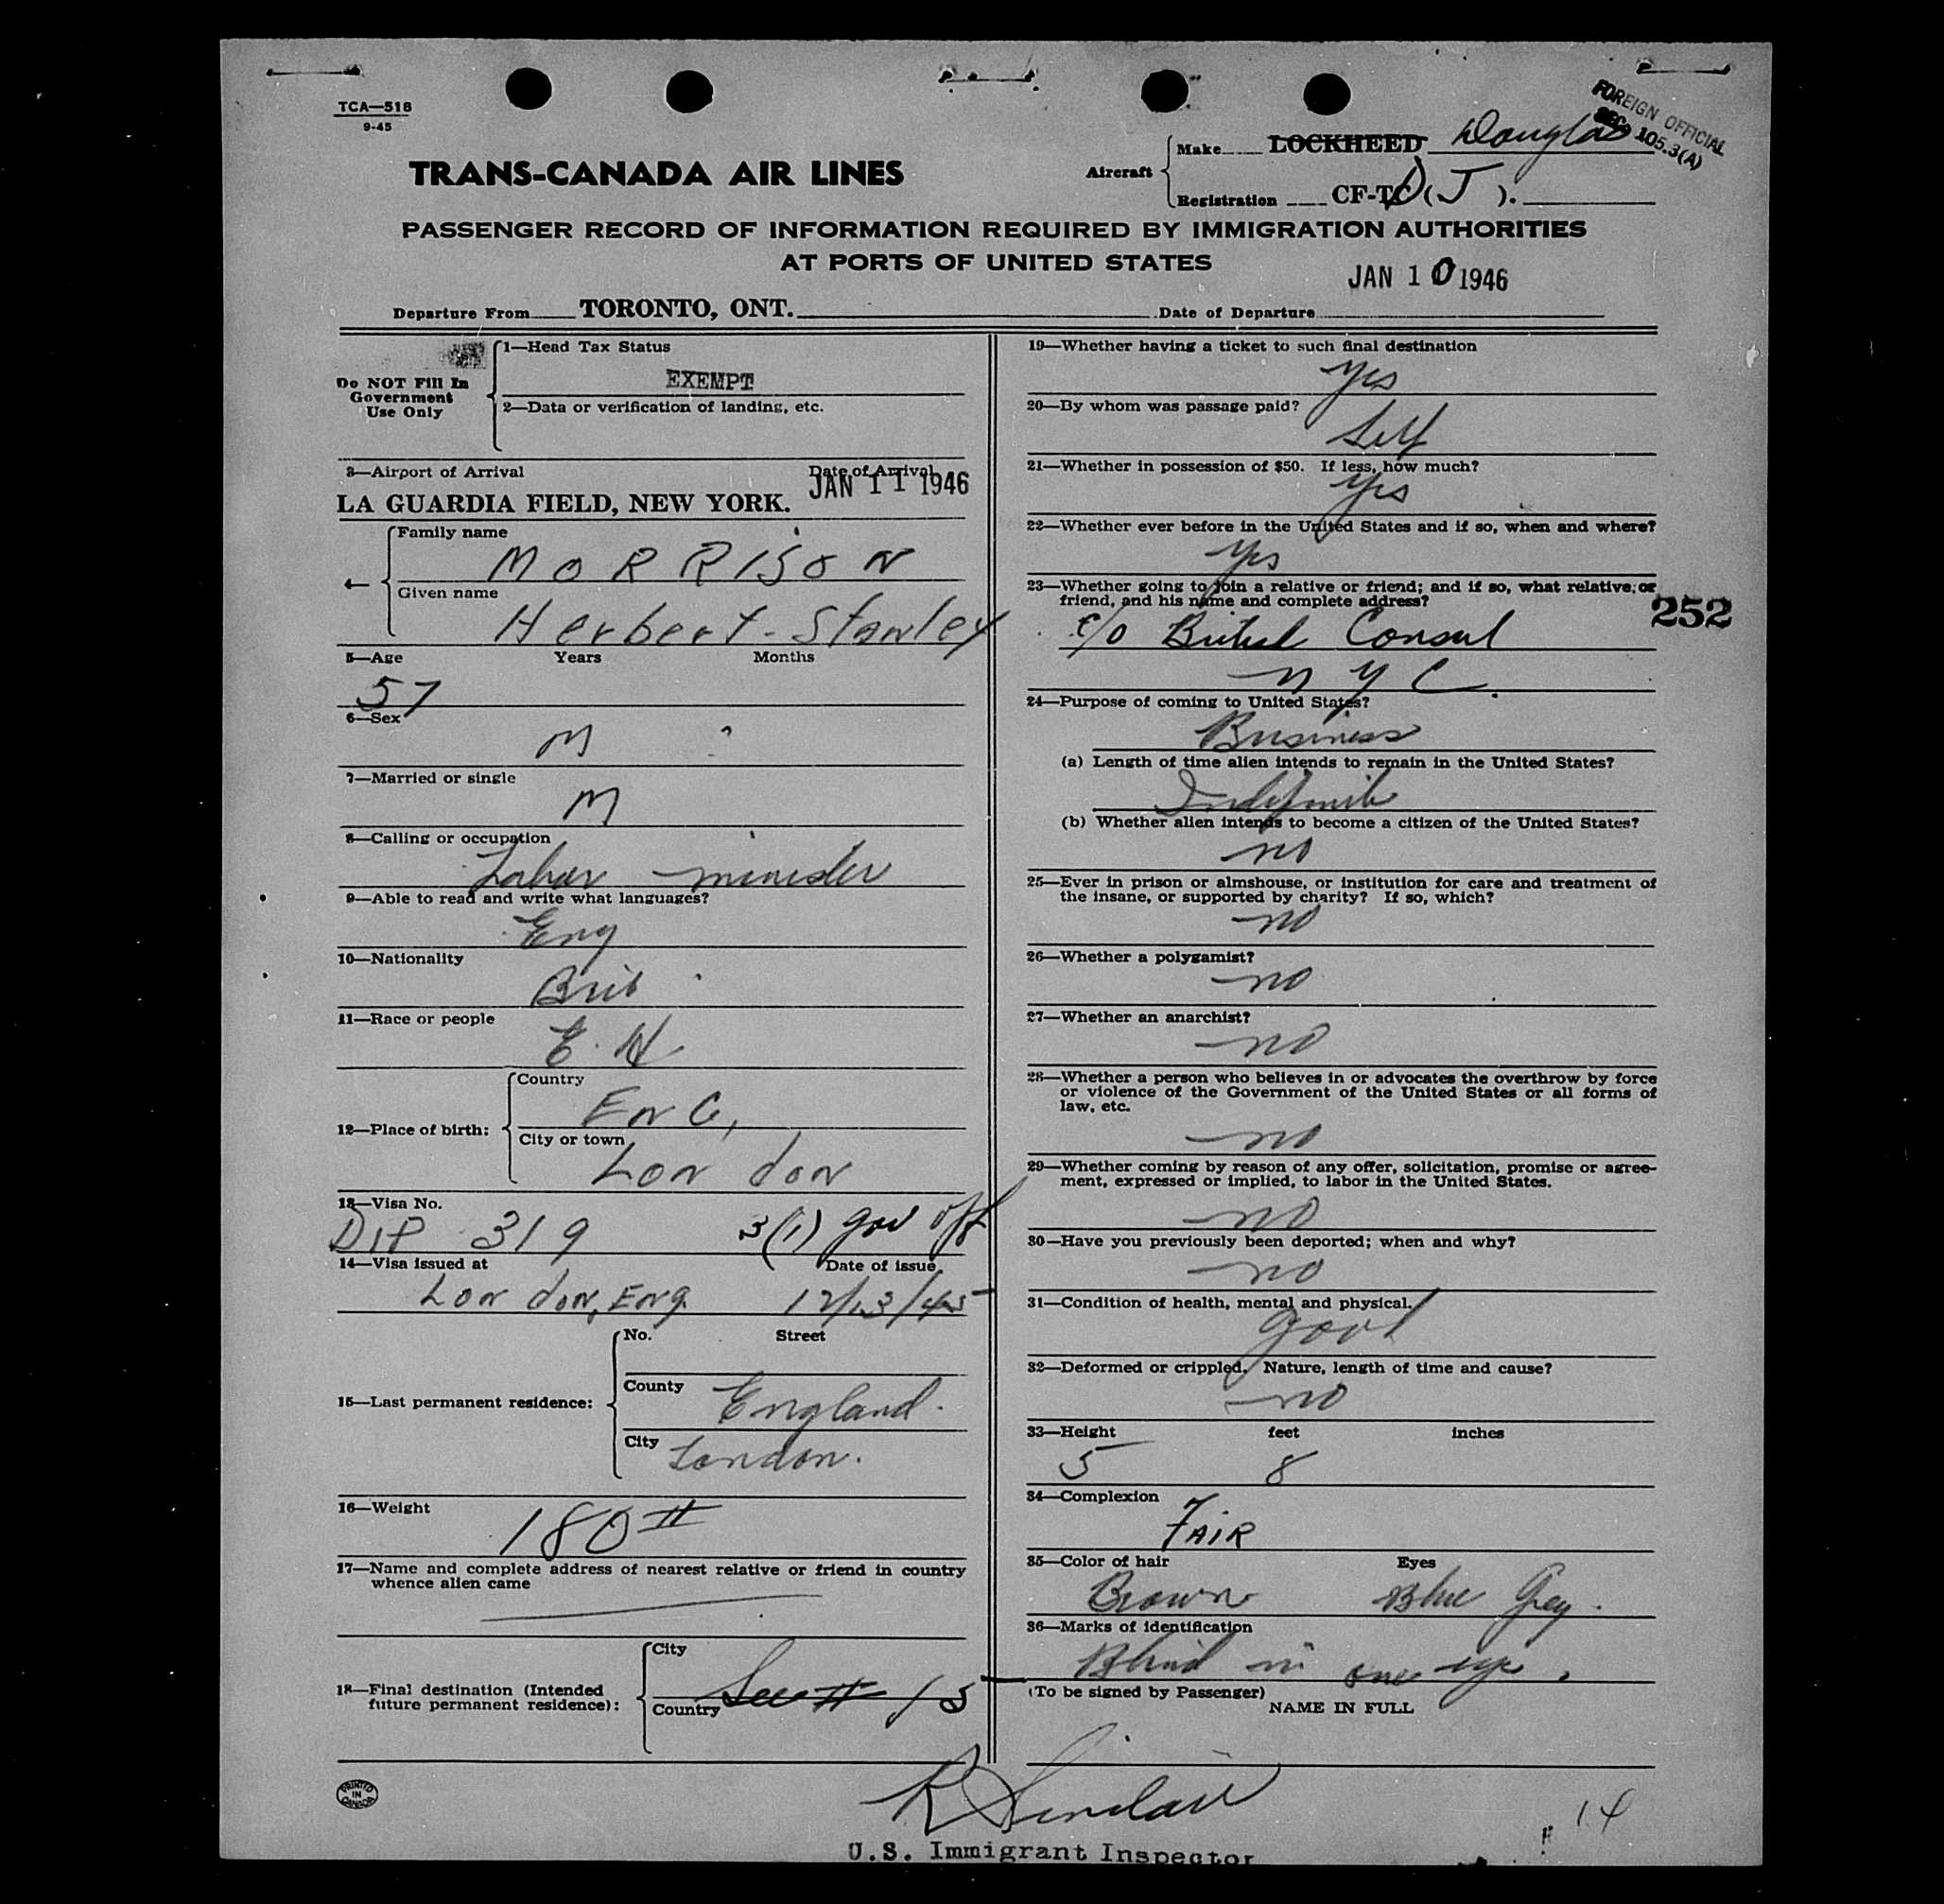 TCA—518
9-45
FOREIGN OFFICIAL
SEC. 105.3(A)
TRANS-CANADA AIR LINES
Aircraft
Make LOCKHEED Douglas
Registration CF-TC D(J).
PASSENGER RECORD OF INFORMATION REQUIRED BY IMMIGRATION AUTHORITIES
AT PORTS OF UNITED STATES
JAN 10 1946
Departure From TORONTO, ONT. Date of Departure
Do NOT Fill In
Government
Use Only
1—Head Tax Status
EXEMPT
2—Data or verification of landing, etc.
3—Airport of Arrival Date of Arrival
LA GUARDIA FIELD, NEW YORK. JAN 11 1946
Family name
MORRISON
Given name
Herbert-Stanley
5—Age Years Months
57
6—Sex
M
7—Married or single
M
8—Calling or occupation
Labor minister
9—Able to read and write what languages?
Eng
10—Nationality
Brit
11—Race or people
E. H
12—Place of birth:
Country
EnG,
City or town
London
13—Visa No.
DIP 319 3(1) gov off
14—Visa issued at Date of issue
London, Eng. 12/13/45
15—Last permanent residence:
No. Street
County England.
City London.
16—Weight
180#
17—Name and complete address of nearest relative or friend in country
whence alien came
18—Final destination (Intended
future permanent residence):
City
See # 15
Country
PRINTED
IN
CANADA
19—Whether having a ticket to such final destination
Yes
20—By whom was passage paid?
Self
21—Whether in possession of $50. If less, how much?
Yes
22—Whether ever before in the United States and if so, when and where?
Yes
23—Whether going to join a relative or friend; and if so, what relative or
friend, and his name and complete address?
252
c/o British Consul
N Y C.
24—Purpose of coming to United States?
Business
(a) Length of time alien intends to remain in the United States?
Indefinite
(b) Whether alien intends to become a citizen of the United States?
no
25—Ever in prison or almshouse, or institution for care and treatment of
the insane, or supported by charity? If so, which?
no
26—Whether a polygamist?
no
27—Whether an anarchist?
no
28—Whether a person who believes in or advocates the overthrow by force
or violence of the Government of the United States or all forms of
law, etc.
no
29—Whether coming by reason of any offer, solicitation, promise or agree-
ment, expressed or implied, to labor in the United States.
no
30—Have you previously been deported; when and why?
no
31—Condition of health, mental and physical.
good
32—Deformed or crippled. Nature, length of time and cause?
no
33—Height feet inches
5 8
34—Complexion
FAIR
35—Color of hair Eyes
Brown Blue Grey.
36—Marks of identification
Blind in one eye.
(To be signed by Passenger)
NAME IN FULL
R Sinclair
U.S. Immigrant Inspector
14